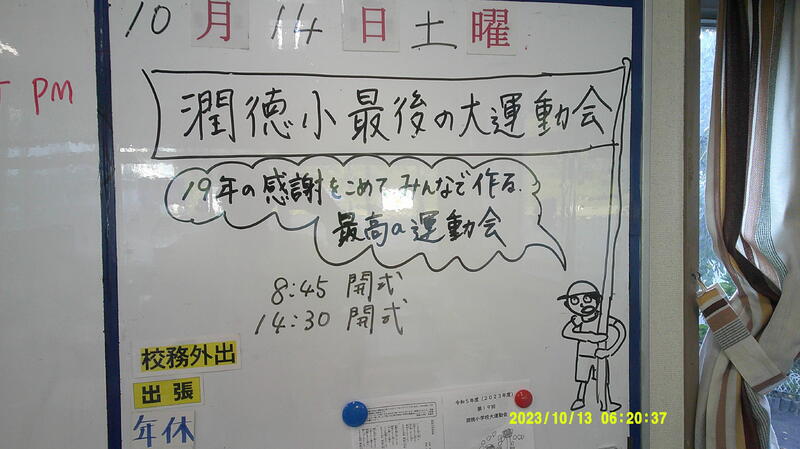 10月14日土曜
PM
潤徳小最後の大運動会
19年の感謝をこめてみんなで作る
最高の運動会
8:45 開式
14:30 開式
校務外出
出張
年休
令和5年度(2023年度)
第19回
潤徳小学校大運動会
2023/10/13 06:20:37